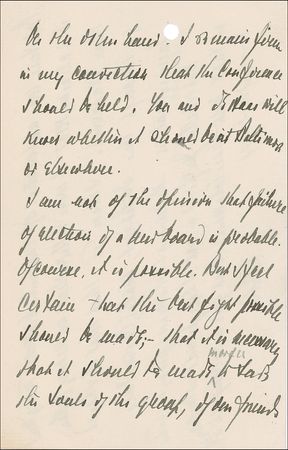 On the other hand. I remain firm
in my conviction that the Conference
should be held. You and De Haas will
know whether it should be at Baltimore
or Elsewhere.
I am not of the opinion that failure
of election of a new board is probable.
Of course, it is possible. But I feel
certain that the best fight possible
should be made; - that it is necessary
that it should be made, to
the souls of the group, of our friends